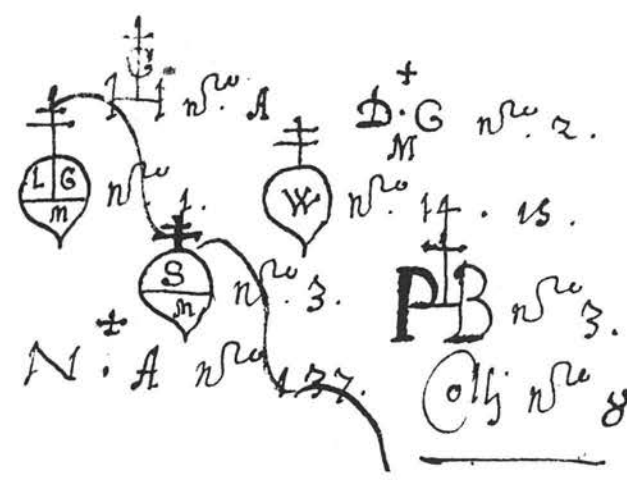 G
I I nro A
+
D·G nro 2.
M
L G
m
nro 1.
W nro 14. 15.
S
m
nro 3.
P B nro 3.
N·A nro 137.
nro 8